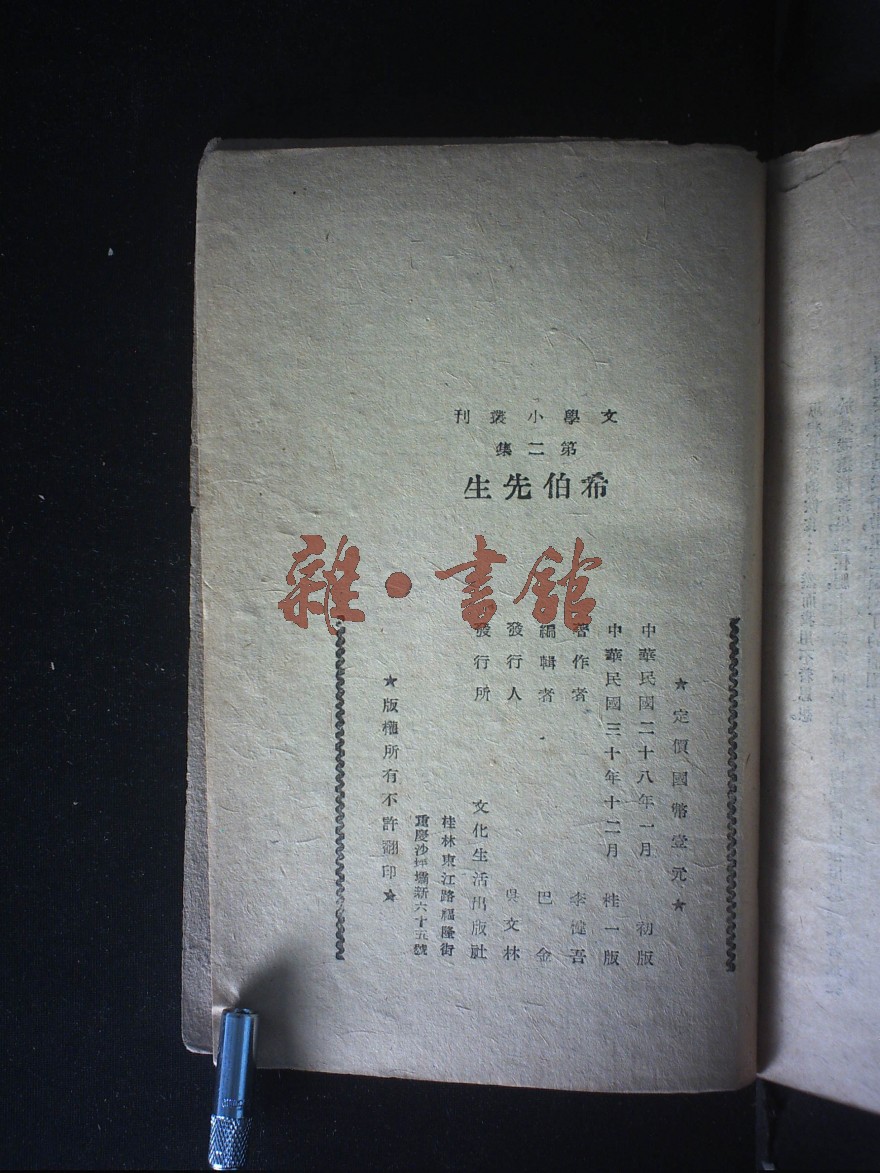 文學小叢刊
第二集
希伯先生
雜·書館
★定價國幣壹元★
中華民國二十八年一月 初版
中華民國三十年十二月 桂一版
著作者 李健吾
編輯者 巴金
發行人 吳文林
發行所 文化生活出版社
桂林東江路福隆街
重慶沙坪壩新六十五號
★版權所有不許翻印★